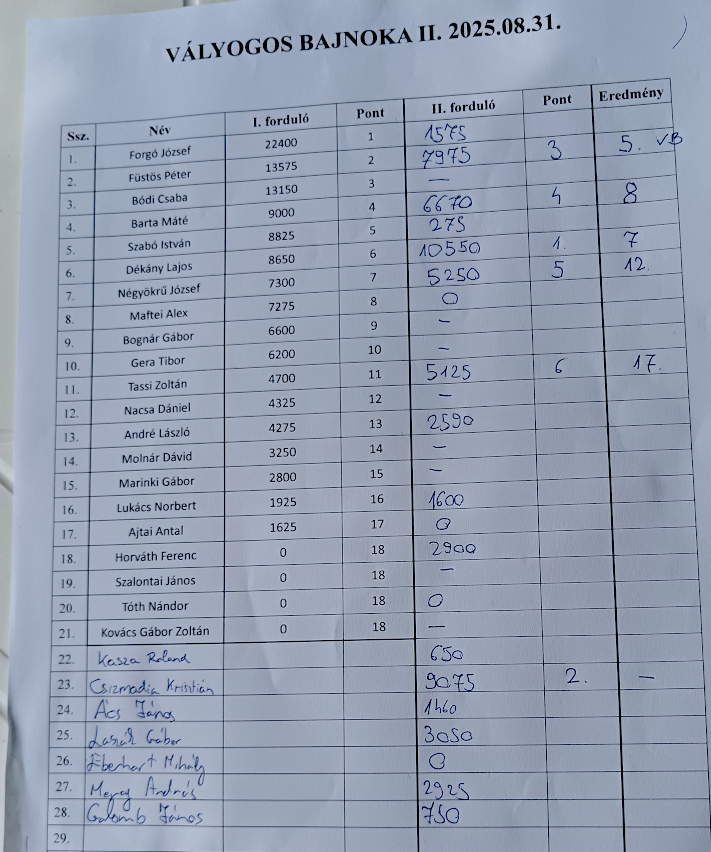 VÁLYOGOS BAJNOKA II. 2025.08.31.
Ssz. Név I. forduló Pont II. forduló Pont Eredmény
1. Forgó József 22400 1 1575
2. Füstös Péter 13575 2 7975 3 5. VB
3. Bódi Csaba 13150 3 —
4. Barta Máté 9000 4 6670 4 8
5. Szabó István 8825 5 275
6. Dékány Lajos 8650 6 10550 1. 7
7. Négyökrű József 7300 7 5250 5 12.
8. Maftei Alex 7275 8 0
9. Bognár Gábor 6600 9 —
10. Gera Tibor 6200 10 —
11. Tassi Zoltán 4700 11 5125 6 17.
12. Nacsa Dániel 4325 12 —
13. André László 4275 13 2590
14. Molnár Dávid 3250 14 —
15. Marinki Gábor 2800 15 —
16. Lukács Norbert 1925 16 1600
17. Ajtai Antal 1625 17 0
18. Horváth Ferenc 0 18 2900
19. Szalontai János 0 18 —
20. Tóth Nándor 0 18 0
21. Kovács Gábor Zoltán 0 18 —
22. Kasza Roland 650
23. Csizmadia Krisztián 9075 2. —
24. Ács János 1460
25. Gábor 3050
26. Eberhart Mihály 0
27. András 2925
28. Galomb János 750
29.